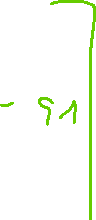 - 91]